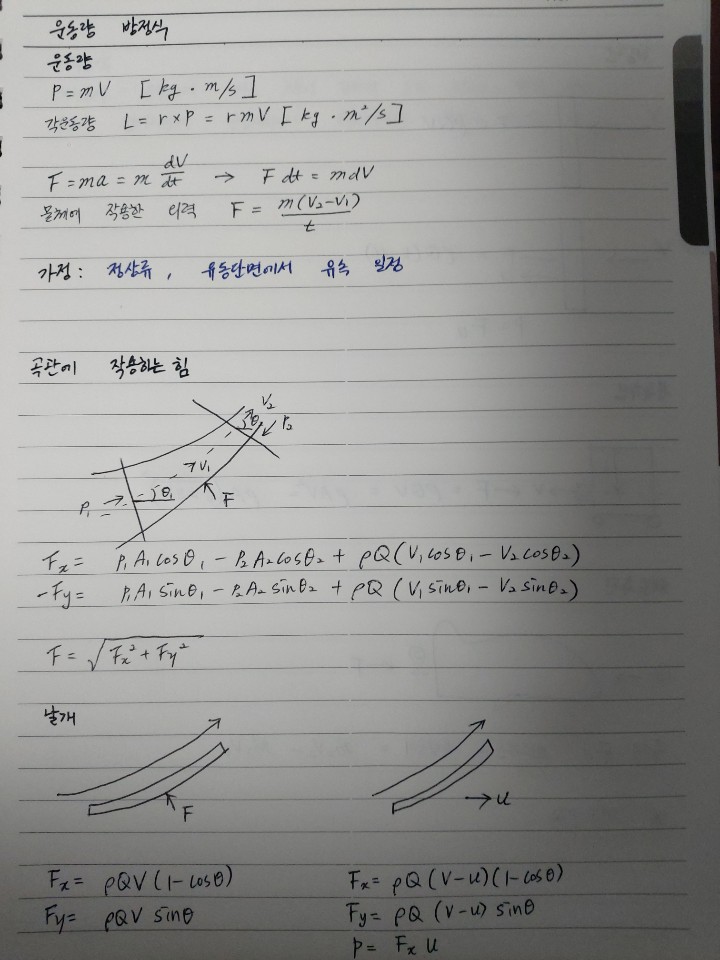 운동량 방정식
운동량
P = mV [kg · m/s]
각운동량 L = r×P = rmV [kg · m²/s]
F = ma = m dV/dt → F dt = mdV
물체에 작용한 외력 F = m(V₂-V₁)/t
가정 : 정상류, 유동단면에서 유속 일정
곡관에 작용하는 힘
V₂
θ₂
P₂
V₁
P₁
θ₁
F
Fx = P₁A₁cosθ₁ - P₂A₂cosθ₂ + ρQ(V₁cosθ₁ - V₂cosθ₂)
-Fy = P₁A₁sinθ₁ - P₂A₂sinθ₂ + ρQ(V₁sinθ₁ - V₂sinθ₂)
F = √(Fx² + Fy²)
날개
F
u
Fx = ρQV(1-cosθ)
Fy = ρQV sinθ
Fx = ρQ(V-u)(1-cosθ)
Fy = ρQ(V-u) sinθ
P = Fx u